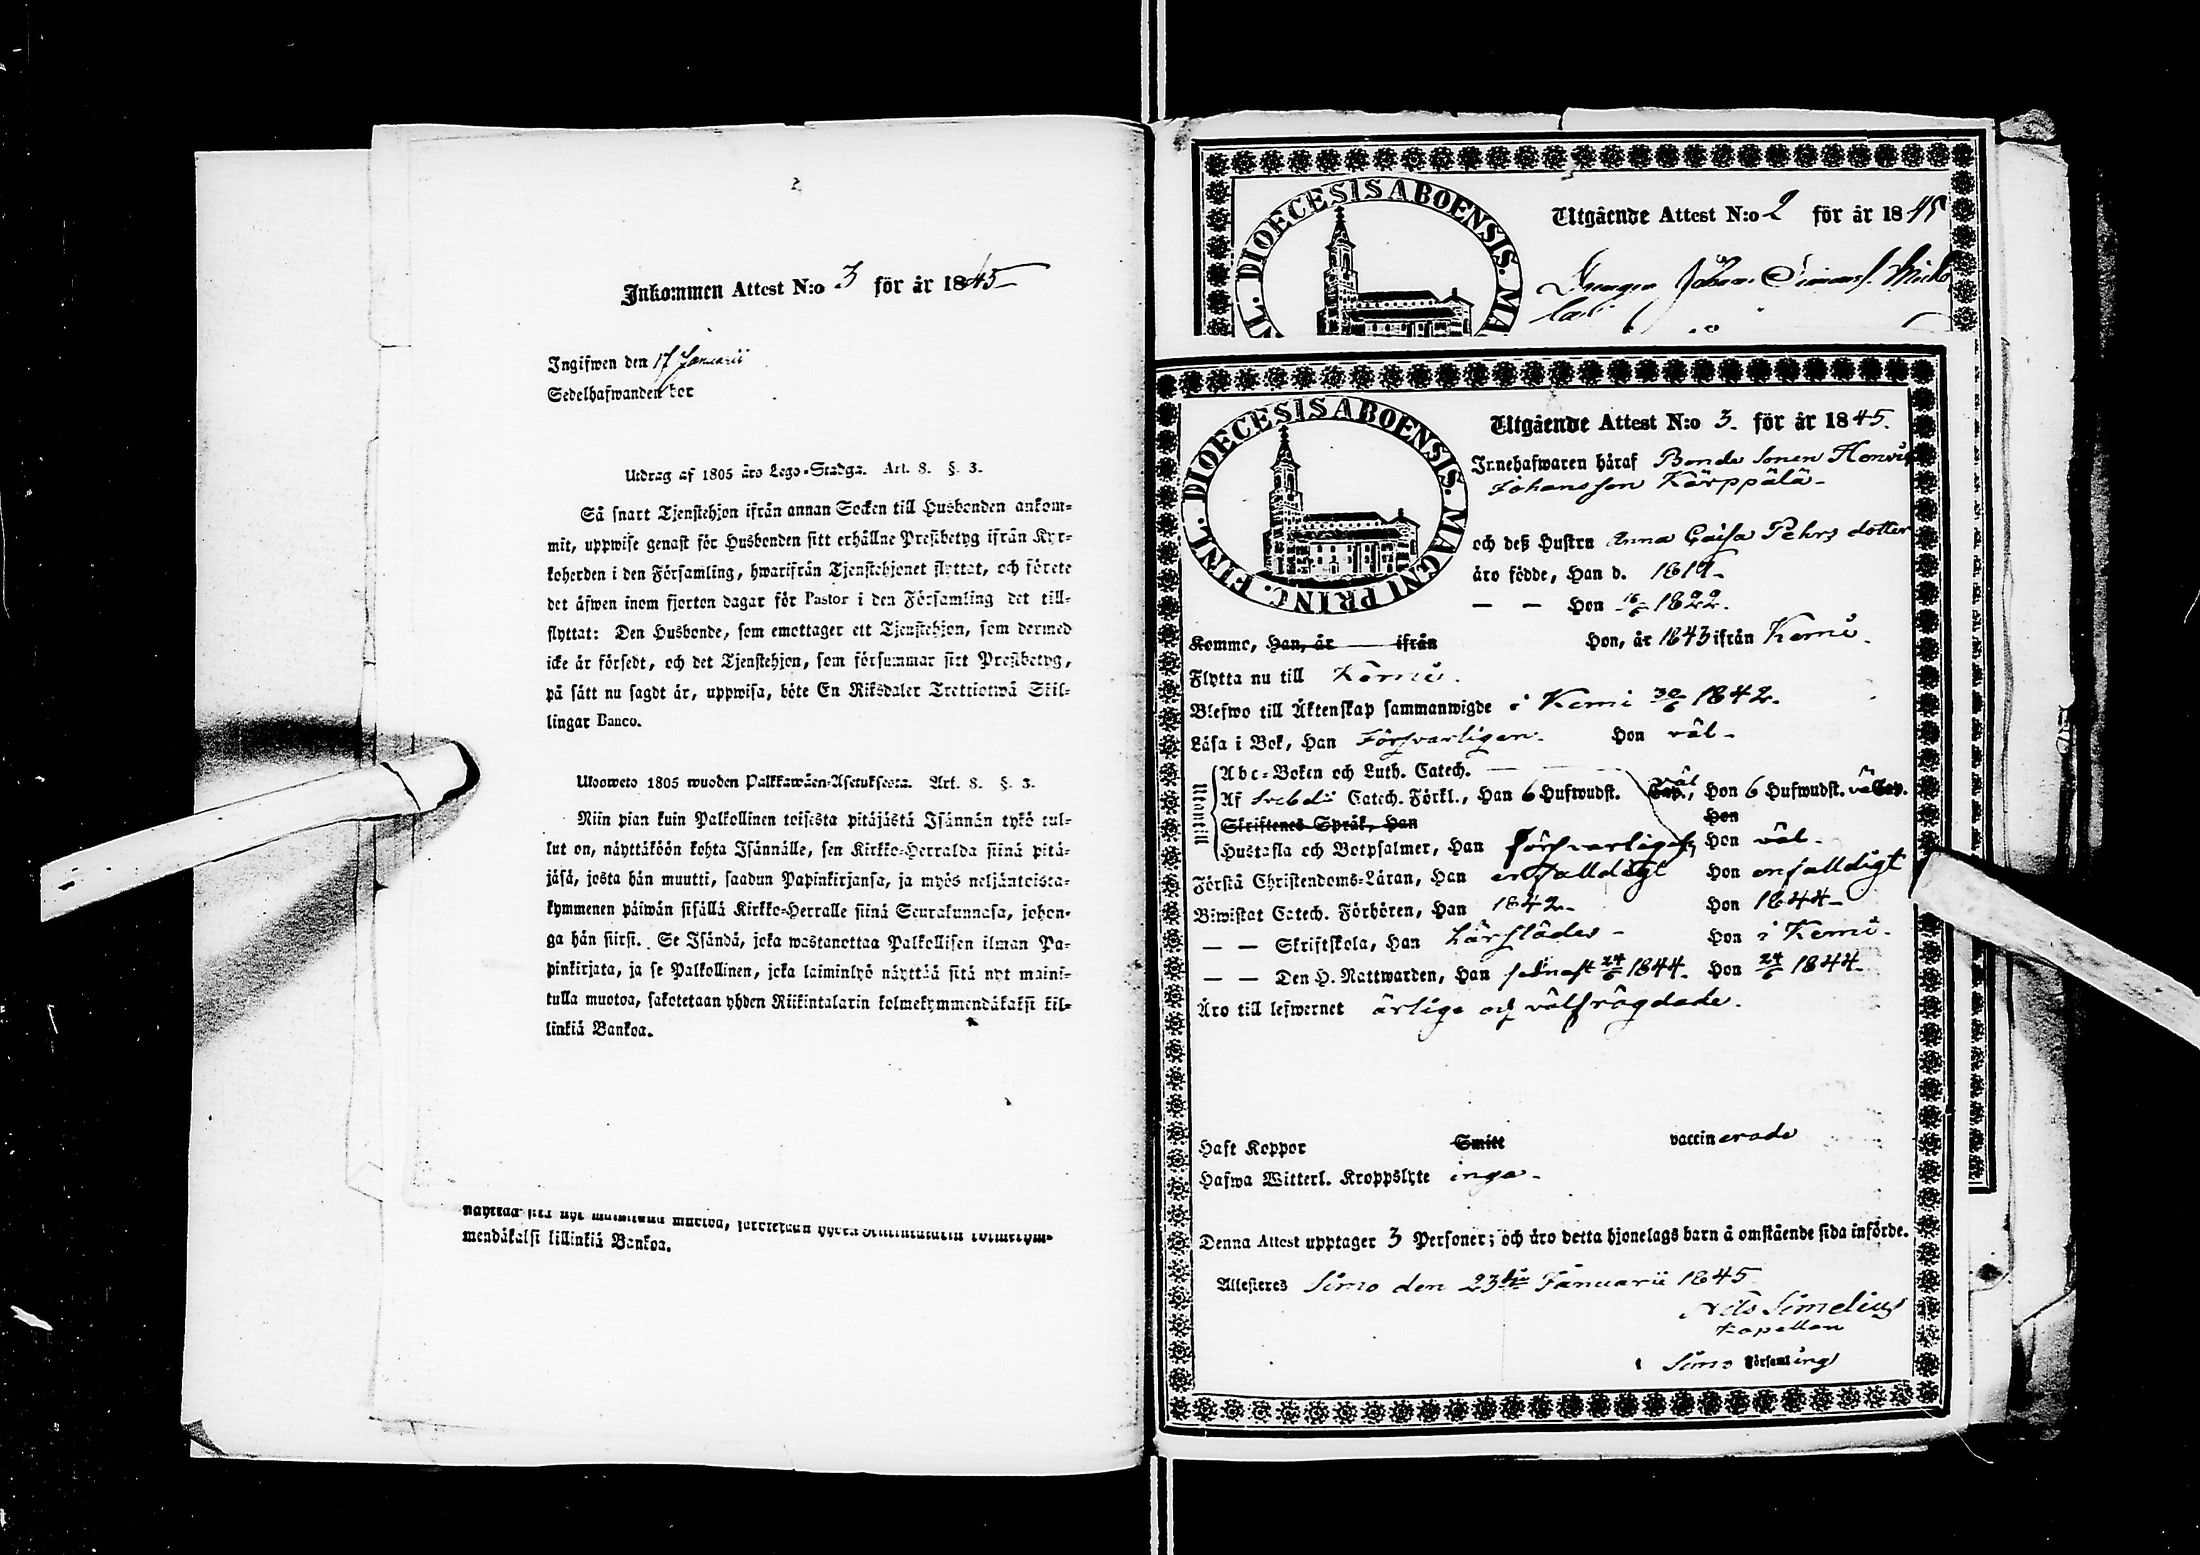 Inkommen Attest N:o 3 för år 1845
Ingifwen den 17 Januarii
Sedelhafwanden bor
Utdrag af 1805 års Lego-Stadga. Art. 8. §. 3.
Så snart Tjenstehjon ifrån annan Socken till Husbonden ankom-
mit, uppwise genast för Husbonden sitt erhållne Prestbetyg ifrån Kyr-
koherden i den Församling, hwarifrån Tjenstehjonet flyttat, och förete
det äfwen inom fjorton dagar för Pastor i den Församling det till-
flyttat: Den Husbonde, som emottager ett Tjenstehjon, som dermed
icke är försedt, och det Tjenstehjon, som försummar sitt Prestbetyg,
på sätt nu sagdt är, uppwisa, böte En Riksdaler Trettiotwå Skil-
lingar Banco.
Uloosweto 1805 wuoden Palkkawäen-Asetuksesta. Art. 8. §. 3.
Niin pian kuin Palkollinen toisesta pitäjästä Isännän tykö tul-
lut on, näyttäköön kohta Isännälle, sen Kirkko-Herralda siinä pitä-
jäsä, josta hän muutti, saadun Papinkirjansa, ja myös neljäntoista-
kymmenen päiwän sisällä Kirkko-Herralle siinä Seurakunnasa, johon-
ga hän siirst. Se Isändä, joka wastanottaa Palkollisen ilman Pa-
pinkirjata, ja se Palkollinen, joka laiminlyö näyttää sitä nyt maini-
tulla muotoa, sakotetaan yhden Riikintalarin kolmekymmendäkaksi kil-
linkiä Bankoa.
näyttää sitä nyt mainitulla muotoa, sakotetaan yhden Riikintalarin kolmekym-
mendäkaksi killinkiä Bankoa.
FINL. DIOECESIS ABOENSIS. MA
Utgående Attest N:o 2 för år 1845
Drengen Johan Simons.
DIOECESIS ABOENSIS. MAGNI PRINC. FINL.
Utgående Attest N:o 3. för år 1845.
Innehafwaren häraf Bonde Sonen Henric
Johansson Kärppälä
och deß Hustru Anna Caisa Pehrs dotter
äro födde, Han d. 1819
— — Hon 16/6 1822.
Komme, Han, år — ifrån Hon, år 1843 ifrån Kemi.
Flytta nu till Kemi.
Blefwo till Äktenskap sammanwigde i Kemi 30/6 1842.
Läsa i Bok, Han Försvarligen. Hon väl
Utantill
Abc-Boken och Luth. Catech.
Af Svebelii Catech. Förkl., Han 6 Hufwudst. väl Cap., Hon 6 Hufwudst. väl Cap.
Skriftenes Språk, Han Hon
Hustafla och Botpsalmer, Han försvarligen, Hon väl
Förstå Christendoms-Läran, Han enfalldigt Hon enfalldigt
Biwistat Catech. Förhören, Han 1842 Hon 1844
— — Skriftskola, Han härstädes Hon i Kemi.
— — Den H. Nattwarden, Han sednast 24/6 1844. Hon 24/6 1844
Äro till lefwernet ärlige och välfrägdade.
Haft Koppor Smitt vaccinerade
Hafwa Witterl. Kroppslyte inga
Denna Attest upptager 3 Personer; och äro detta hjonelags barn å omstående sida införde.
Attesteres Simo den 23die Januarii 1845
Nils Simelius
Kapellan
i Simo Församling